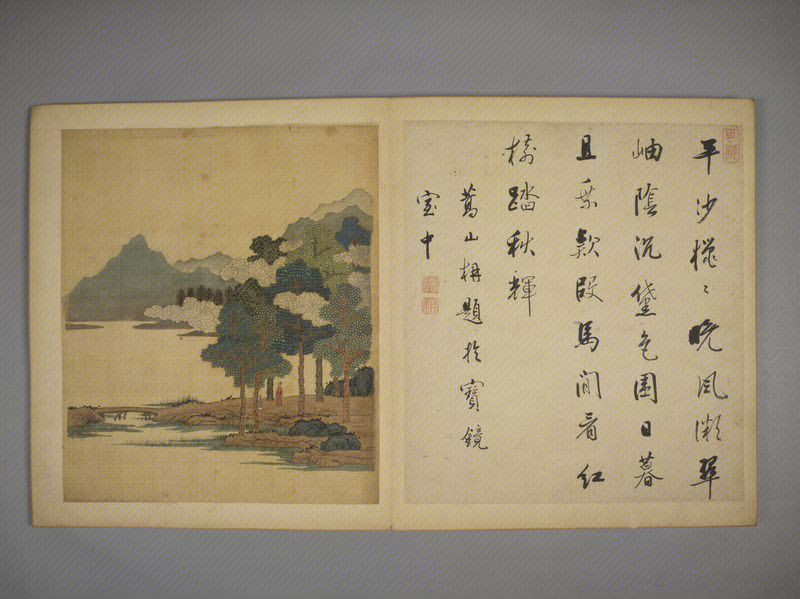 平沙漠〻晚風微翠
岫陰沉黛色圍日暮
且乘款段馬閒看紅
樹踏秋輝
山題於寶鏡
室中